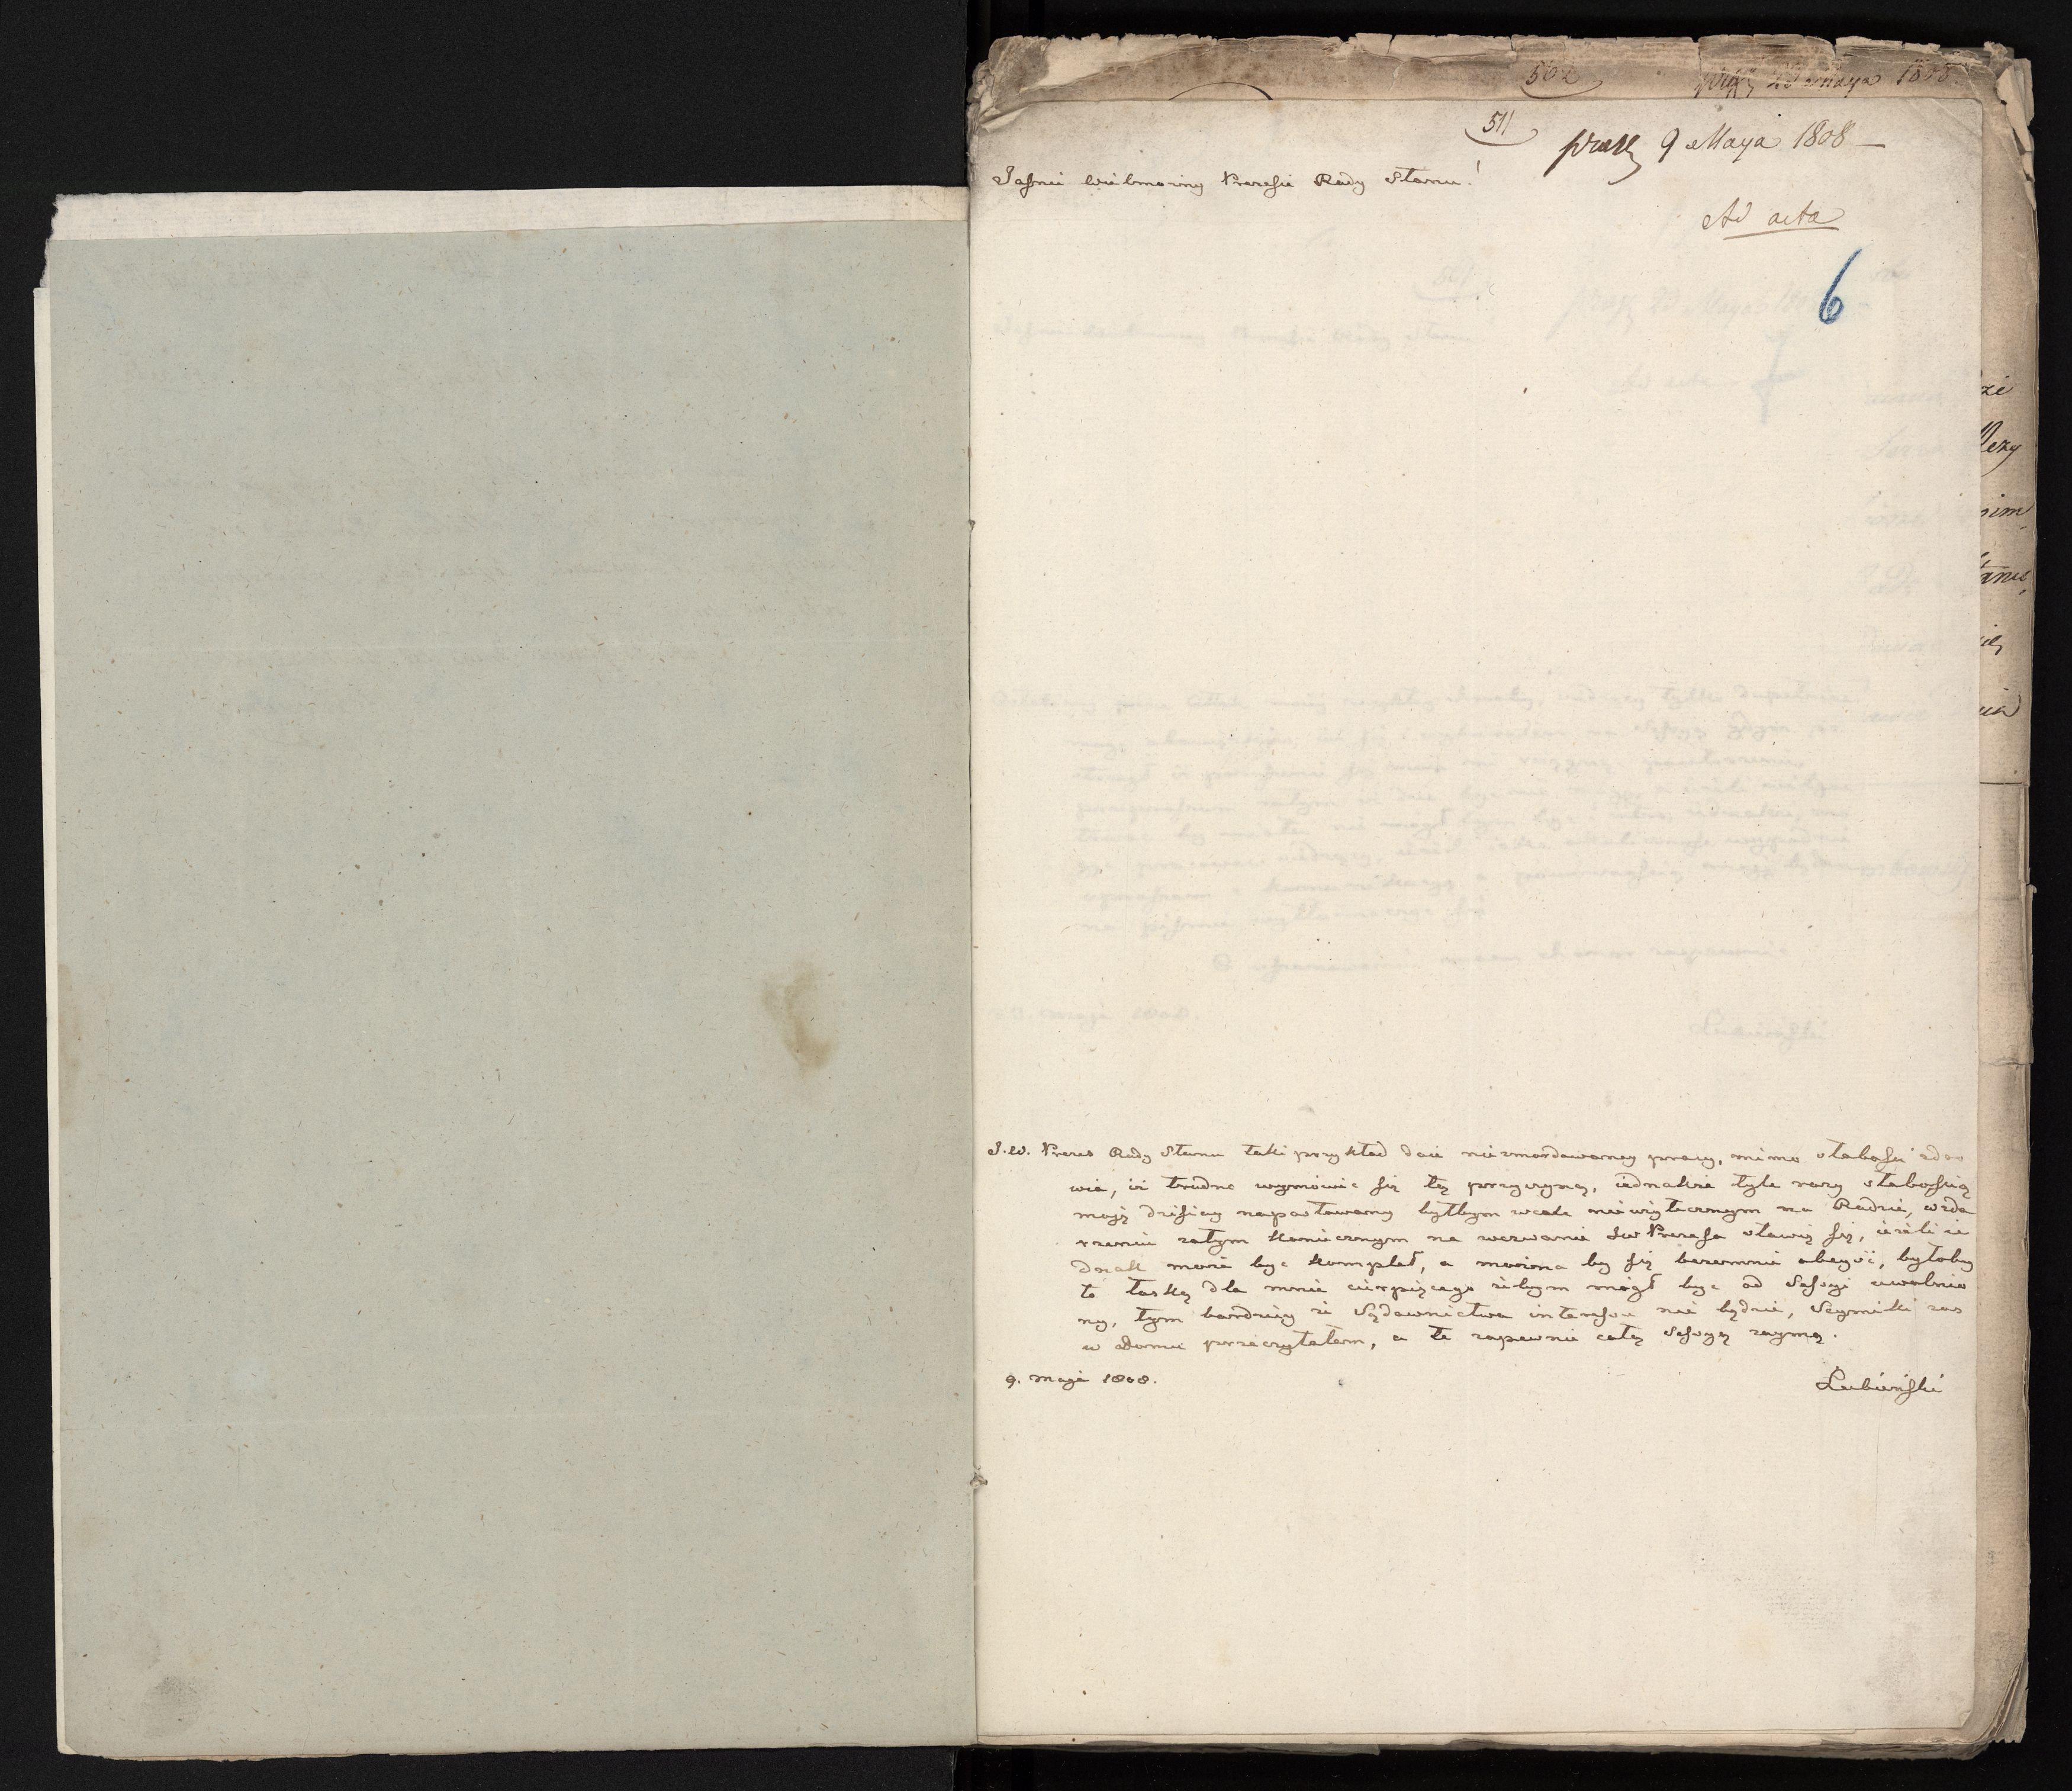 502
28 Maya 1808
511
9 Maya 1808 —
Jaśnie Wielmożny Prezesie Rady Stanu!
Ad acta
6
J.W. Prezes Rady Stanu taki przykład daie niezmordowaney pracy, mimo słabości zdro
wia, iż trudno wymówić się tą przyczyną, iednakże tyle razy słabością
moją dzisiay napastowany byłbym wcale nieużytecznym na Radzie, w zda
rzeniu zatym koniecznym na wezwanie JW Prezesa stawię się, ieżeli ie
dnak może być komplet, a można by się bezemnie obeyść, byłoby
to łaską dla mnie cierpiącego żebym mógł być od Sessyi uwolnio
ny, tym bardziey że Sądownictwa interessu nie będzie, Seymiki zas
w domu przeczytałem, a te zapewnie całą Sessyą zaymą.
9. maja 1808.
Łubieński
zie
nim